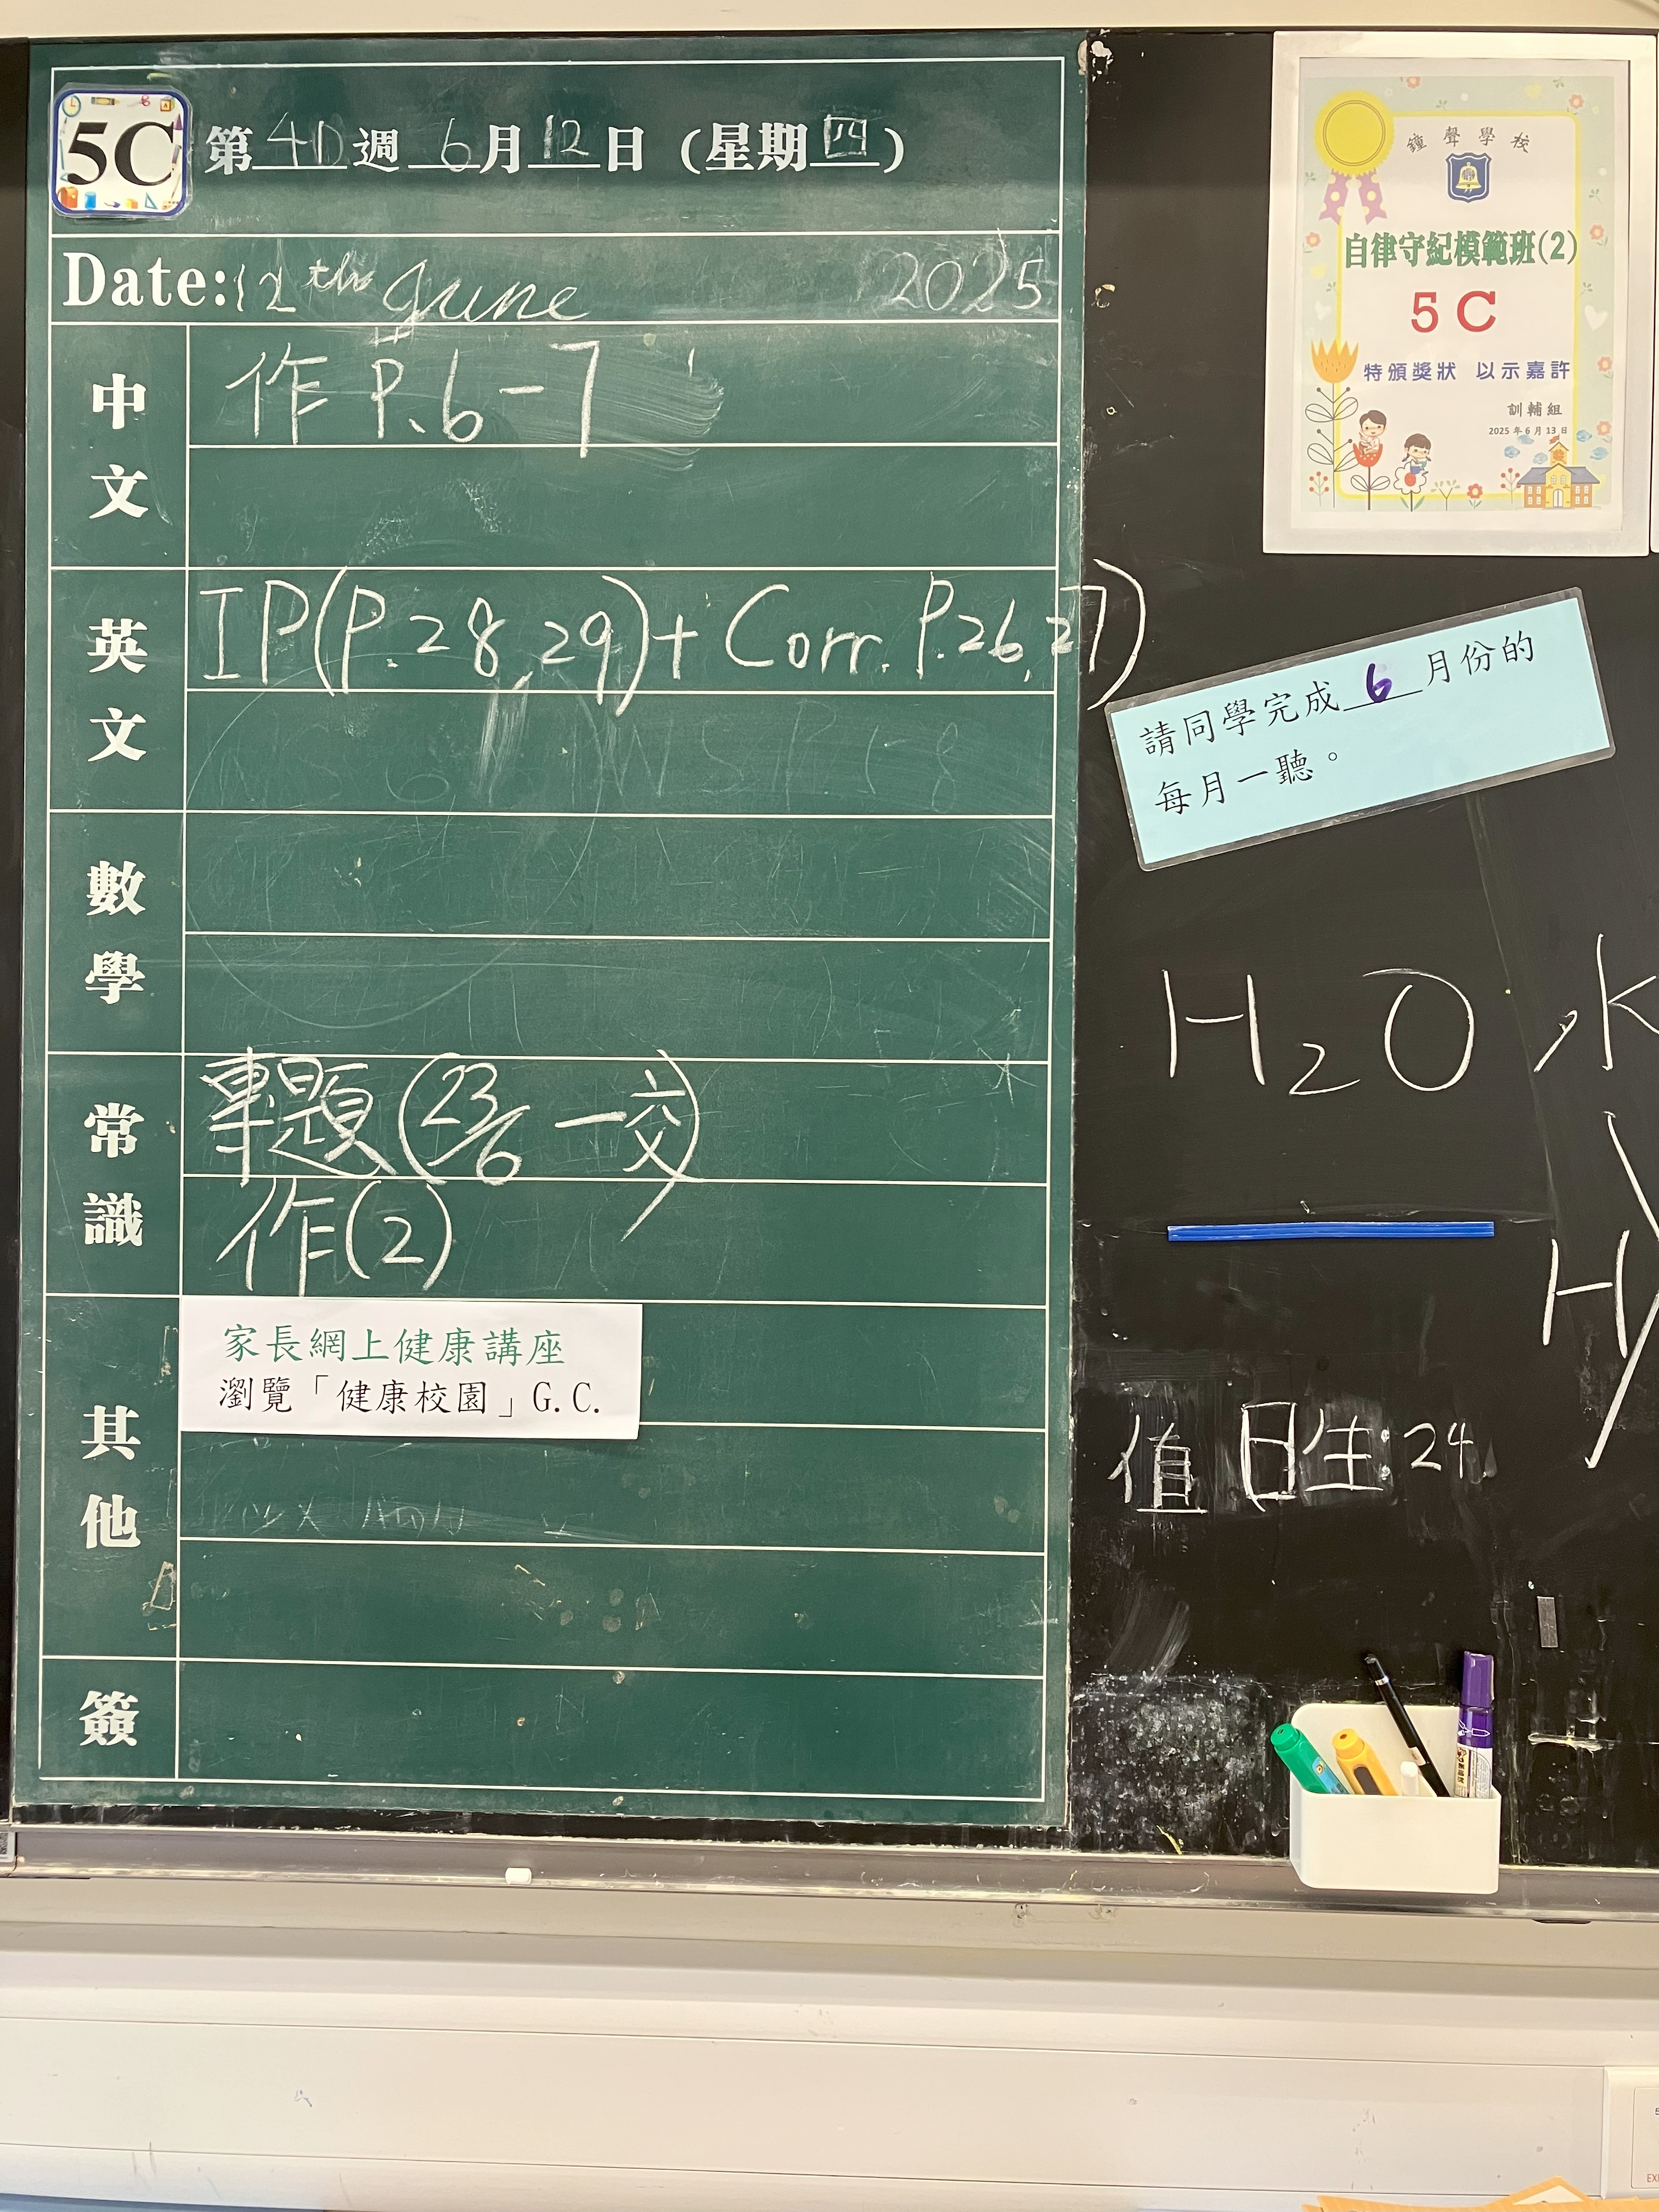 5C 第 40 週 6 月 12 日 (星期 四)
Date: 12th June 2025
中文
作 P.6-7
英文
IP(P.28,29)+ Corr. P.26,27)
數學
常識
專題(23/6 一交)
作(2)
其他
家長網上健康講座
瀏覽「健康校園」G.C.
簽
鐘聲學校
自律守紀模範班(2)
5C
特頒獎狀 以示嘉許
訓輔組
2025年6月13日
請同學完成 6 月份的
每月一聽。
H2O,
值日生:24